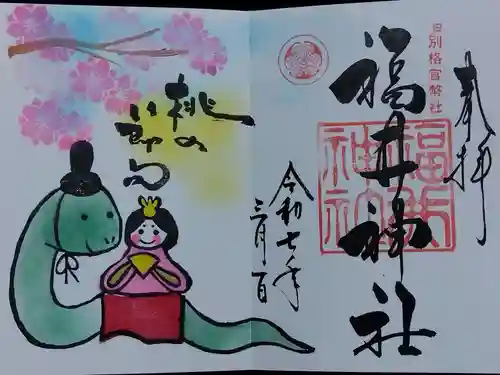 奉拝
旧別格官幣社
福井神社
福井
神社
令和七年
三月一日
桃の
節句